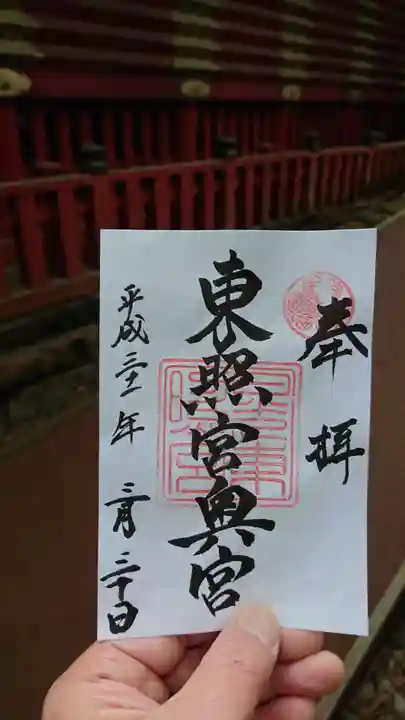 奉拝
東照宮奥宮
平成三十一年 三月三十日